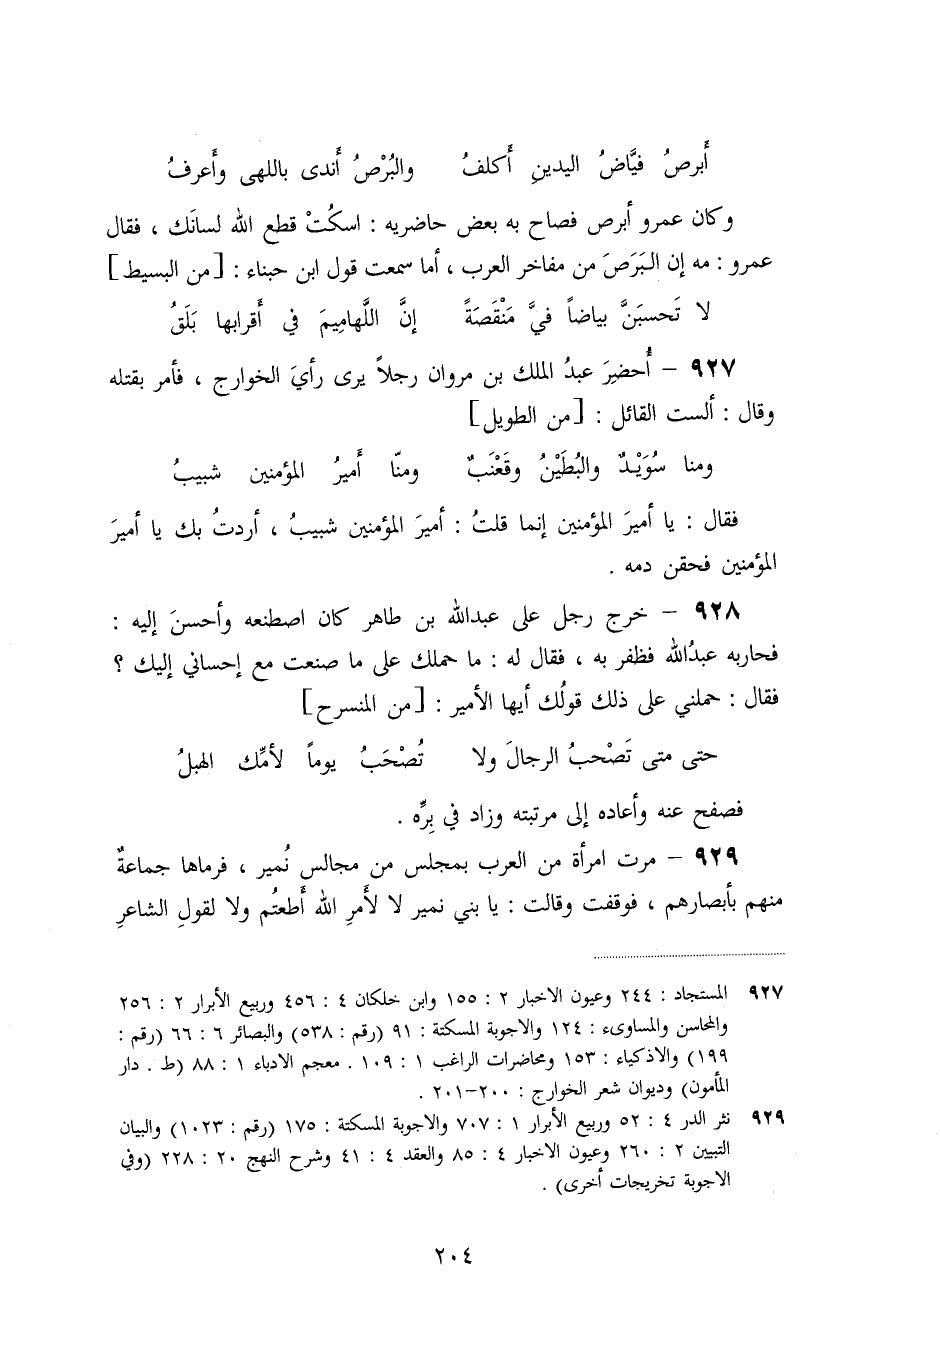 أَبرصُ فيَّاضُ اليدينِ أَكلفُ والبُرْصُ أَندى باللهى وأَعرفُ
وكان عمرو أبرص فصاح به بعض حاضريه : اسكُتْ قطع الله لسانَك ، فقال
عمرو : مه إن البَرَصَ من مفاخر العرب ، أما سمعت قول ابن حبناء : [من البسيط]
لا تَحسبَنَّ بياضاً فيَّ مَنْقَصَةً إنَّ اللَّهامِيمَ في أَقرابها بَلَقُ
٩٢٧ – أُحضِرَ عبدُ الملك بن مروان رجلاً يرى رأيَ الخوارج ، فأمر بقتله
وقال : ألست القائل : [من الطويل]
ومنا سُوَيْدٌ والبُطَيْنُ وقَعْنَبٌ ومنّا أَميرُ المؤمنين شبيبُ
فقال : يا أميرَ المؤمنين إنما قلتُ : أميرَ المؤمنين شبيبُ ، أردتُ بك يا أميرَ
المؤمنين فحقن دمه .
٩٢٨ – خرج رجل على عبدالله بن طاهر كان اصطنعه وأحسنَ إليه :
فحاربه عبدُالله فظفر به ، فقال له : ما حملك على ما صنعت مع إحساني إليك ؟
فقال : حملني على ذلك قولُك أيها الأمير : [من المنسرح]
حتى متى تَصْحبُ الرجالَ ولا تُصْحَبُ يوماً لأمِّك الهبلُ
فصفح عنه وأعاده إلى مرتبته وزاد في بِرِّه .
٩٢٩ – مرت امرأة من العرب بمجلس من مجالس نُمير ، فرماها جماعةٌ
منهم بأبصارهم ، فوقفت وقالت : يا بني نمير لا لأَمرِ الله أَطعتُم ولا لقولِ الشاعرِ
٩٢٧ المستجاد : ٢٤٤ وعيون الاخبار ٢ : ١٥٥ وابن خلكان ٤ : ٤٥٦ وربيع الأبرار ٢ : ٢٥٦
والمحاسن والمساوىء : ١٢٤ والاجوبة المسكتة : ٩١ (رقم : ٥٣٨) والبصائر ٦ : ٦٦ (رقم :
١٩٩) والاذكياء : ١٥٣ ومحاضرات الراغب ١ : ١٠٩ . معجم الادباء ١ : ٨٨ (ط . دار
المأمون) وديوان شعر الخوارج : ٢٠٠–٢٠١ .
٩٢٩ نثر الدر ٤ : ٥٢ وربيع الأبرار ١ : ٧٠٧ والاجوبة المسكتة : ١٧٥ (رقم : ١٠٢٣) والبيان
التبيين ٢ : ٢٦٠ وعيون الاخبار ٤ : ٨٥ والعقد ٤ : ٤١ وشرح النهج ٢٠ : ٢٢٨ (وفي
الاجوبة تخريجات أخرى) .
٢٠٤